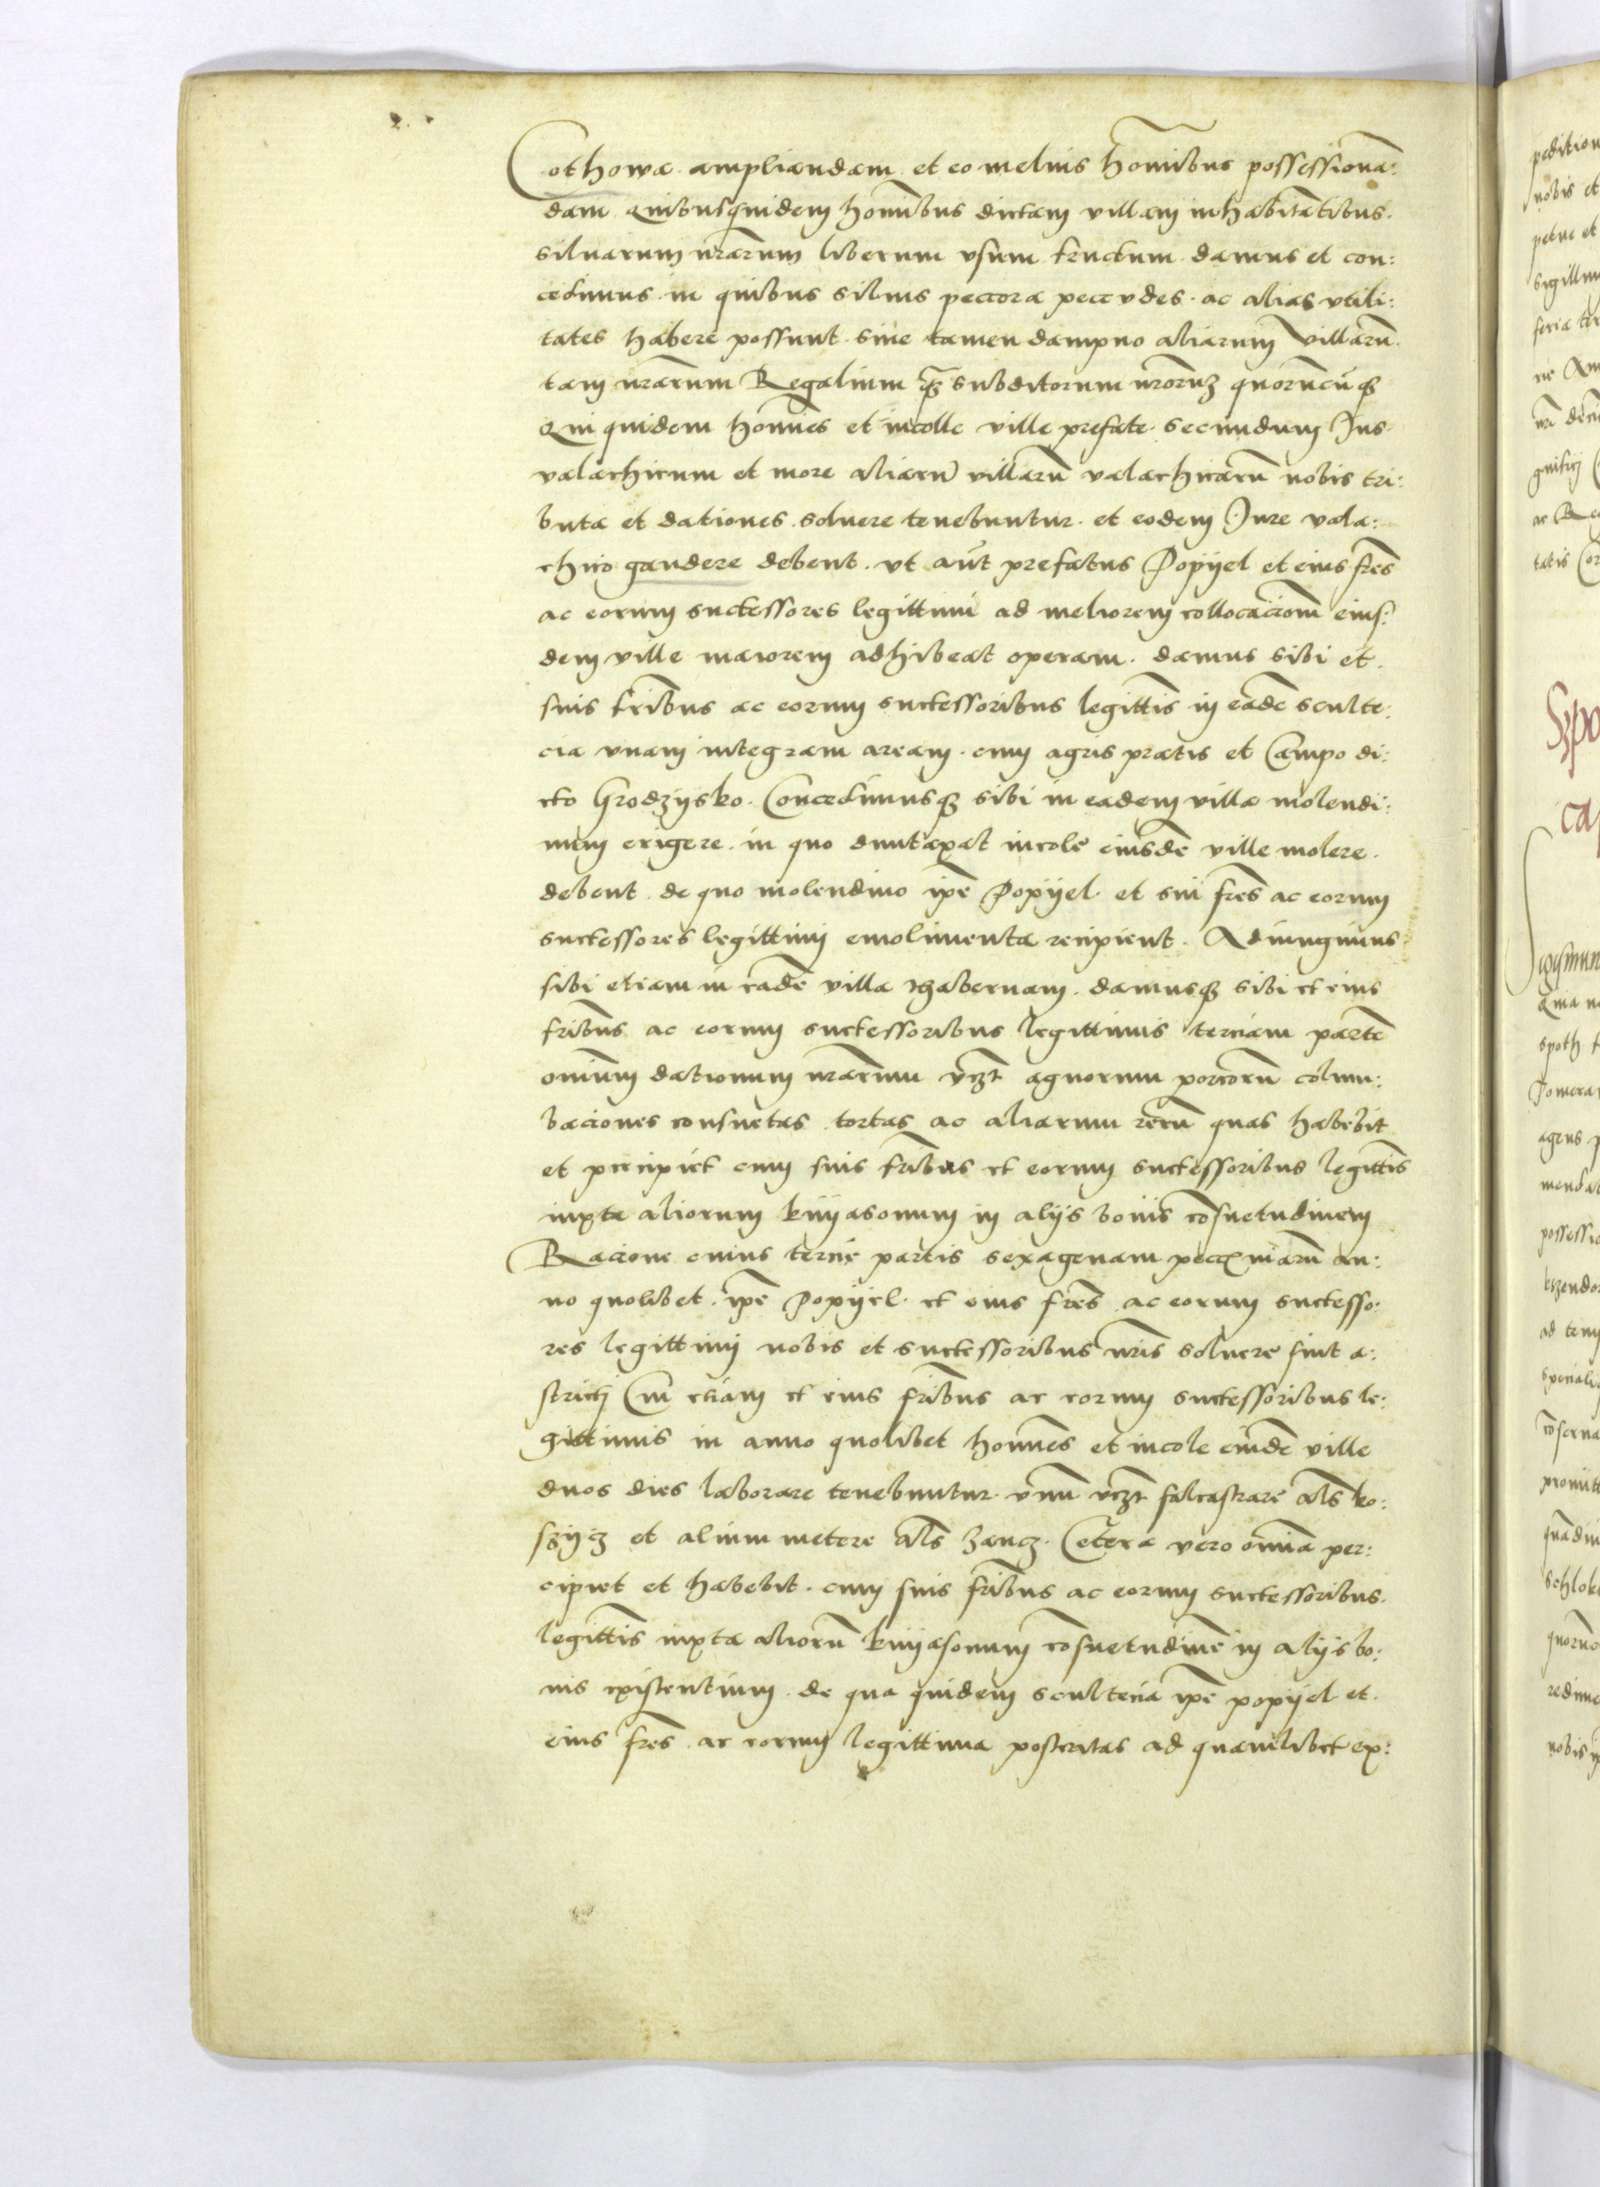 Cothowa ampliandam et eo melius hominibus possessiona:
dam quibusquidem hominibus dictam villam inhabitatibus.
siluarum nrarum liberum vsum fructum damus et con:
cedimus in quibus siluis peccora peccudes. ac alias vtili:
tates habere possunt. sine tamen dampno aliarum villaru.
tam nrarum Regalium qz subditorum nroruz quorucuqz
Qui quidem homines et incolle ville prefate secundum Jus
valachicum et more aliaru villaru valachicaru nobis tri:
buta et dationes soluere tenebuntur. et eodem Jure vala:
chico gaudere debent. vt aut prefatus Popyel et eius fres
ac eorum successores legittimi ad meliorem collocaciom eius:
dem ville maiorem adhibeat operam. damus sibi et.
suis fribus ac eorum successoribus legittis in eade sculte:
cia vnam integram aream. cum agris pratis et Campo di:
cto Grodzysko. Concedimusqz sibi in eadem villa molendi:
num erigere. in quo duntaxat incole eiusde ville molere.
debent de quo molendino ipe Popyel et sui fres ac eorum
successores legittimi emolimenta recipient. Adiungimus
sibi etiam in eade villa thabernam. damusqz sibi et eius
fribus ac eorum successoribus legittimis terciam parte
omium dationum nrarum vczt agnorum porcoru colum:
baciones consuetas tortas ac aliarum reru quas habebit
et percipiet cum suis fribus et eorum successoribus legittis
iuxta aliorum knyasonum in alys bonis cosuetudinem
Racione cuius tercie partis sexagenam peccuniaru an:
no quolibet. ipe Popyel. et eius fres ac eorum successo:
res legittimi nobis et successoribus nris soluere sint a:
stricti Cui etiam et eius fribus ac eorum successoribus le:
gittimis in anno quolibet homines et incole eiusde ville
duos dies laborare tenebuntur. vnu vczt falcastrare als ko:
szycz et alium metere als zancz. Cetera vero omia per:
cipiet et habebit. cum suis fribus ac eorum successoribus.
legittis iuxta alioru knyasonum cosuetudine in alys bo:
nis existentium. de qua quidem scultecia ipe popyel et.
eius fres ac eorum legittima posteritas ad quamlibet ex: